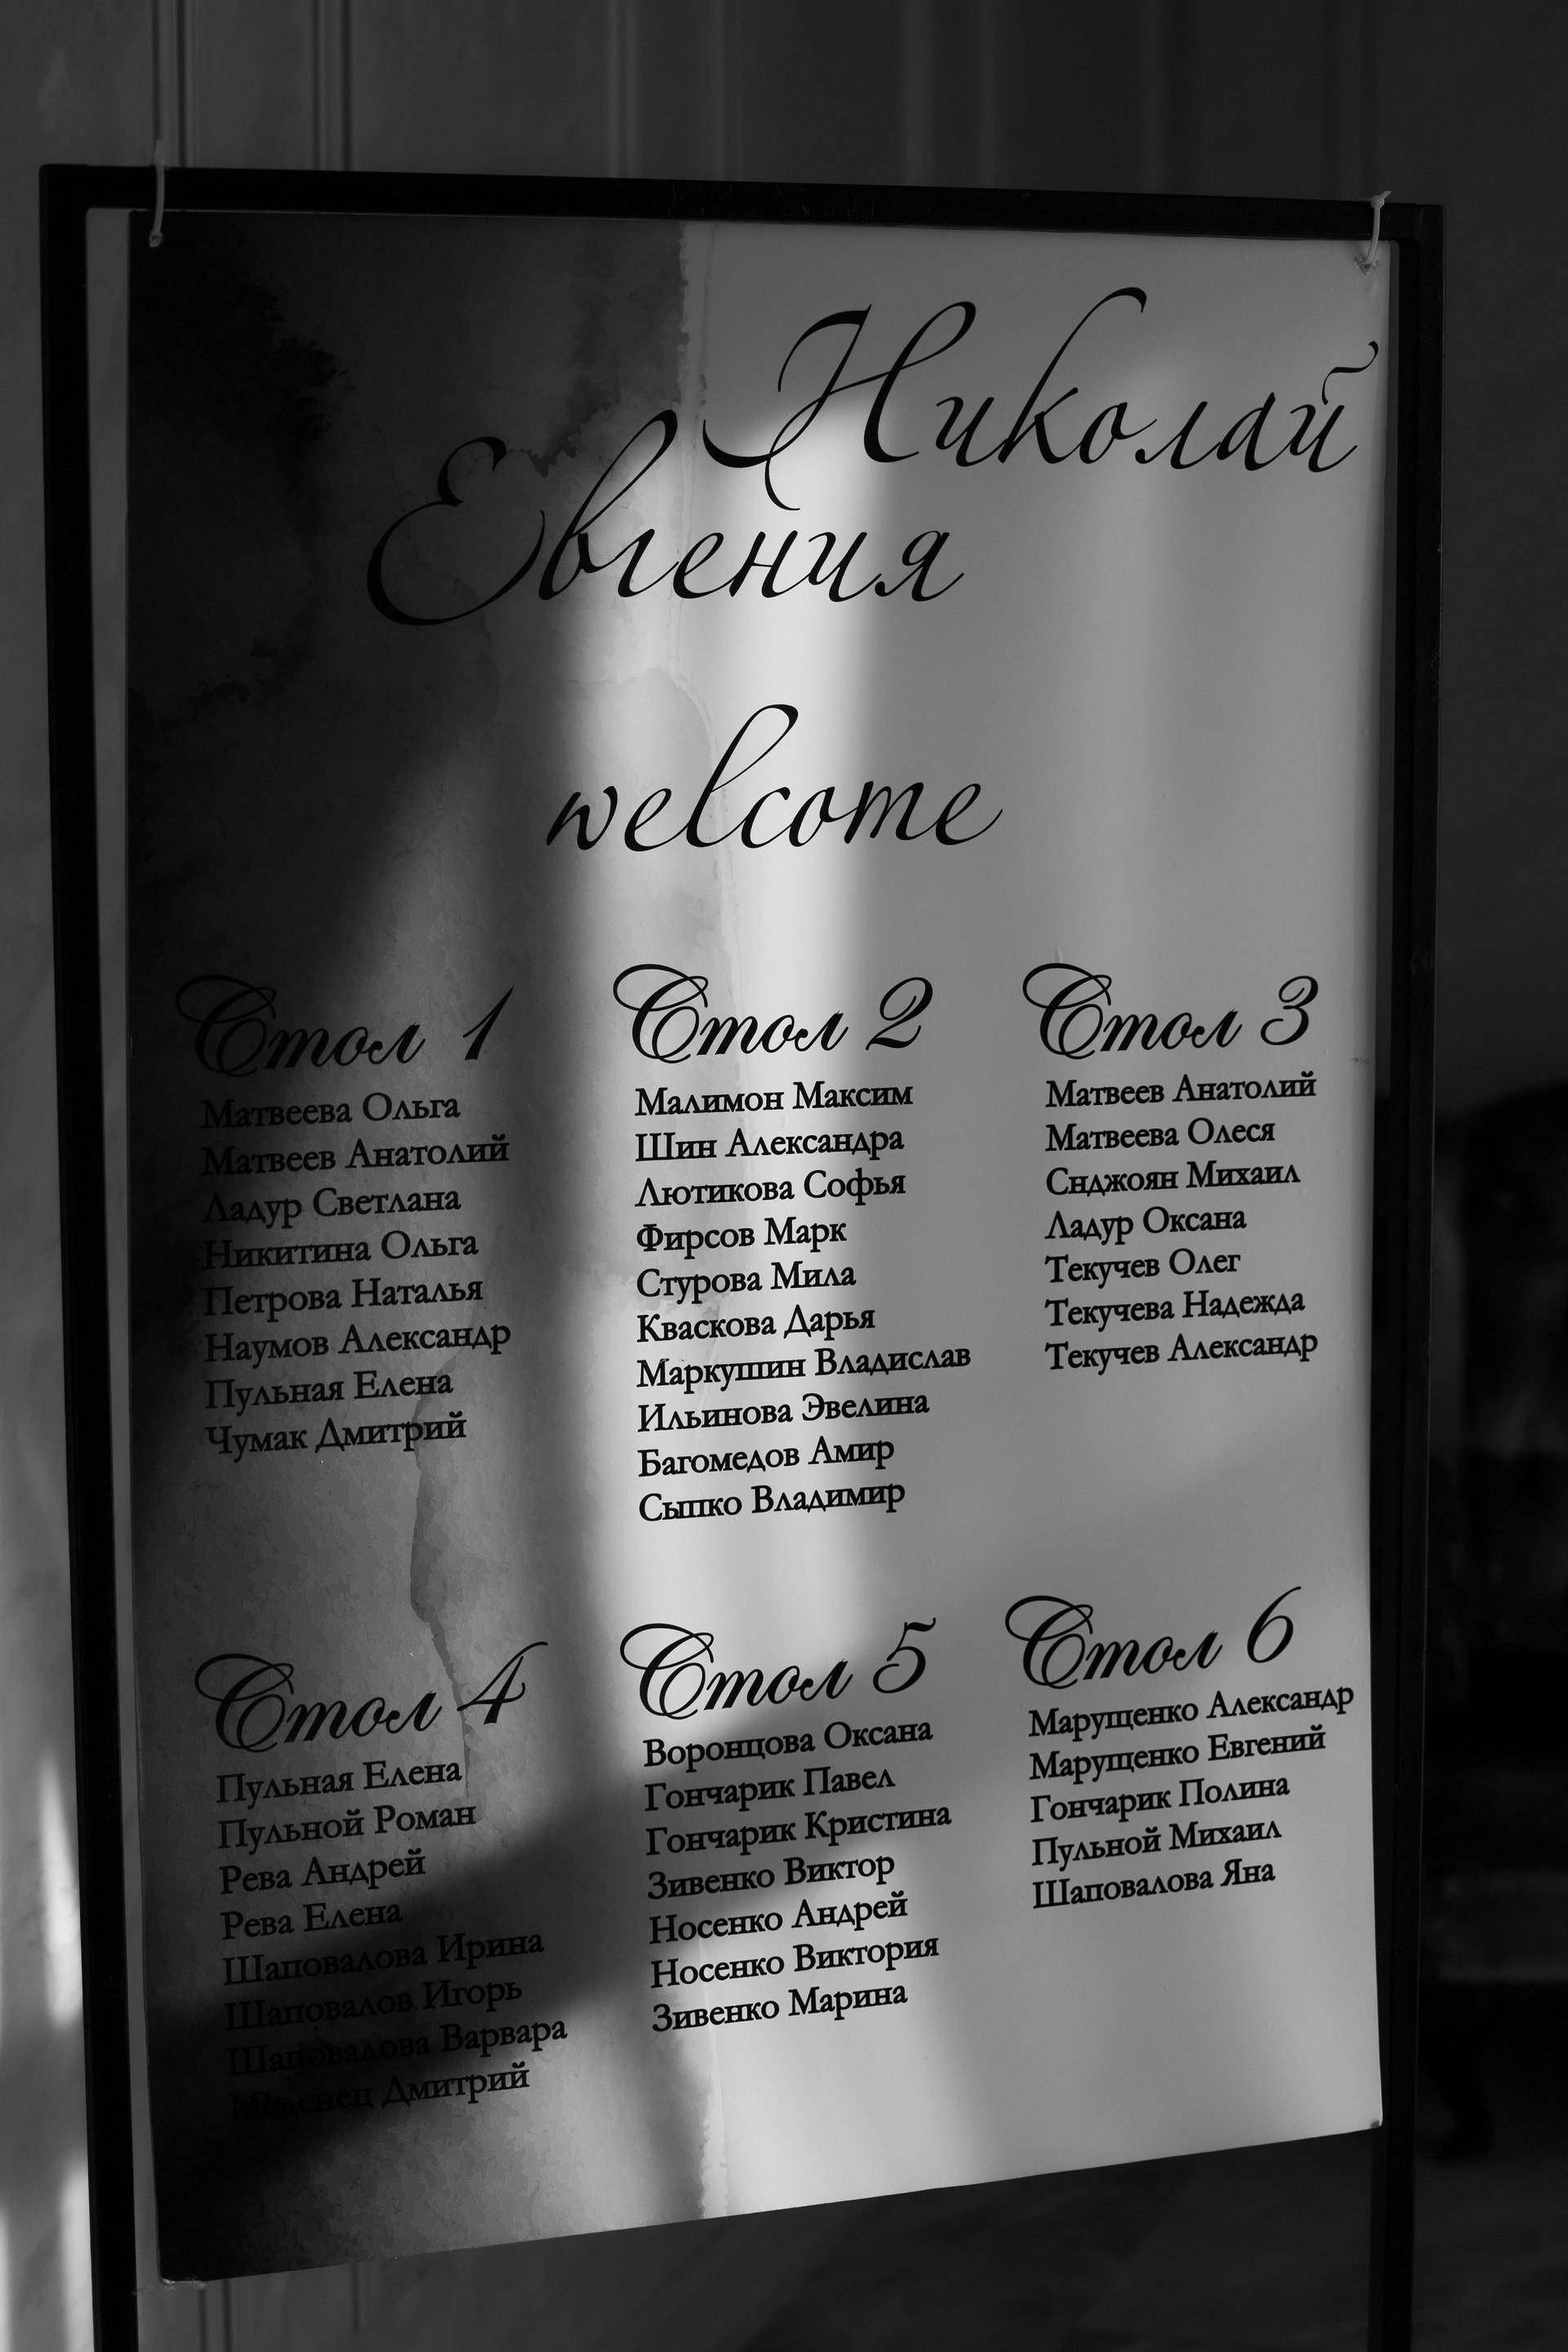 Николай
Евгения
welcome
Стол 1
Матвеева Ольга
Матвеев Анатолий
Ладур Светлана
Никитина Ольга
Петрова Наталья
Наумов Александр
Пульная Елена
Чумак Дмитрий
Стол 2
Малимон Максим
Шин Александра
Лютикова Софья
Фирсов Марк
Стурова Мила
Кваскова Дарья
Маркушин Владислав
Ильинова Эвелина
Багомедов Амир
Сыпко Владимир
Стол 3
Матвеев Анатолий
Матвеева Олеся
Снджоян Михаил
Ладур Оксана
Текучев Олег
Текучева Надежда
Текучев Александр
Стол 4
Пульная Елена
Пульной Роман
Рева Андрей
Рева Елена
Шаповалова Ирина
Шаповалов Игорь
Шаповалова Варвара
Дмитрий
Стол 5
Воронцова Оксана
Гончарик Павел
Гончарик Кристина
Зивенко Виктор
Носенко Андрей
Носенко Виктория
Зивенко Марина
Стол 6
Марущенко Александр
Марущенко Евгений
Гончарик Полина
Пульной Михаил
Шаповалова Яна